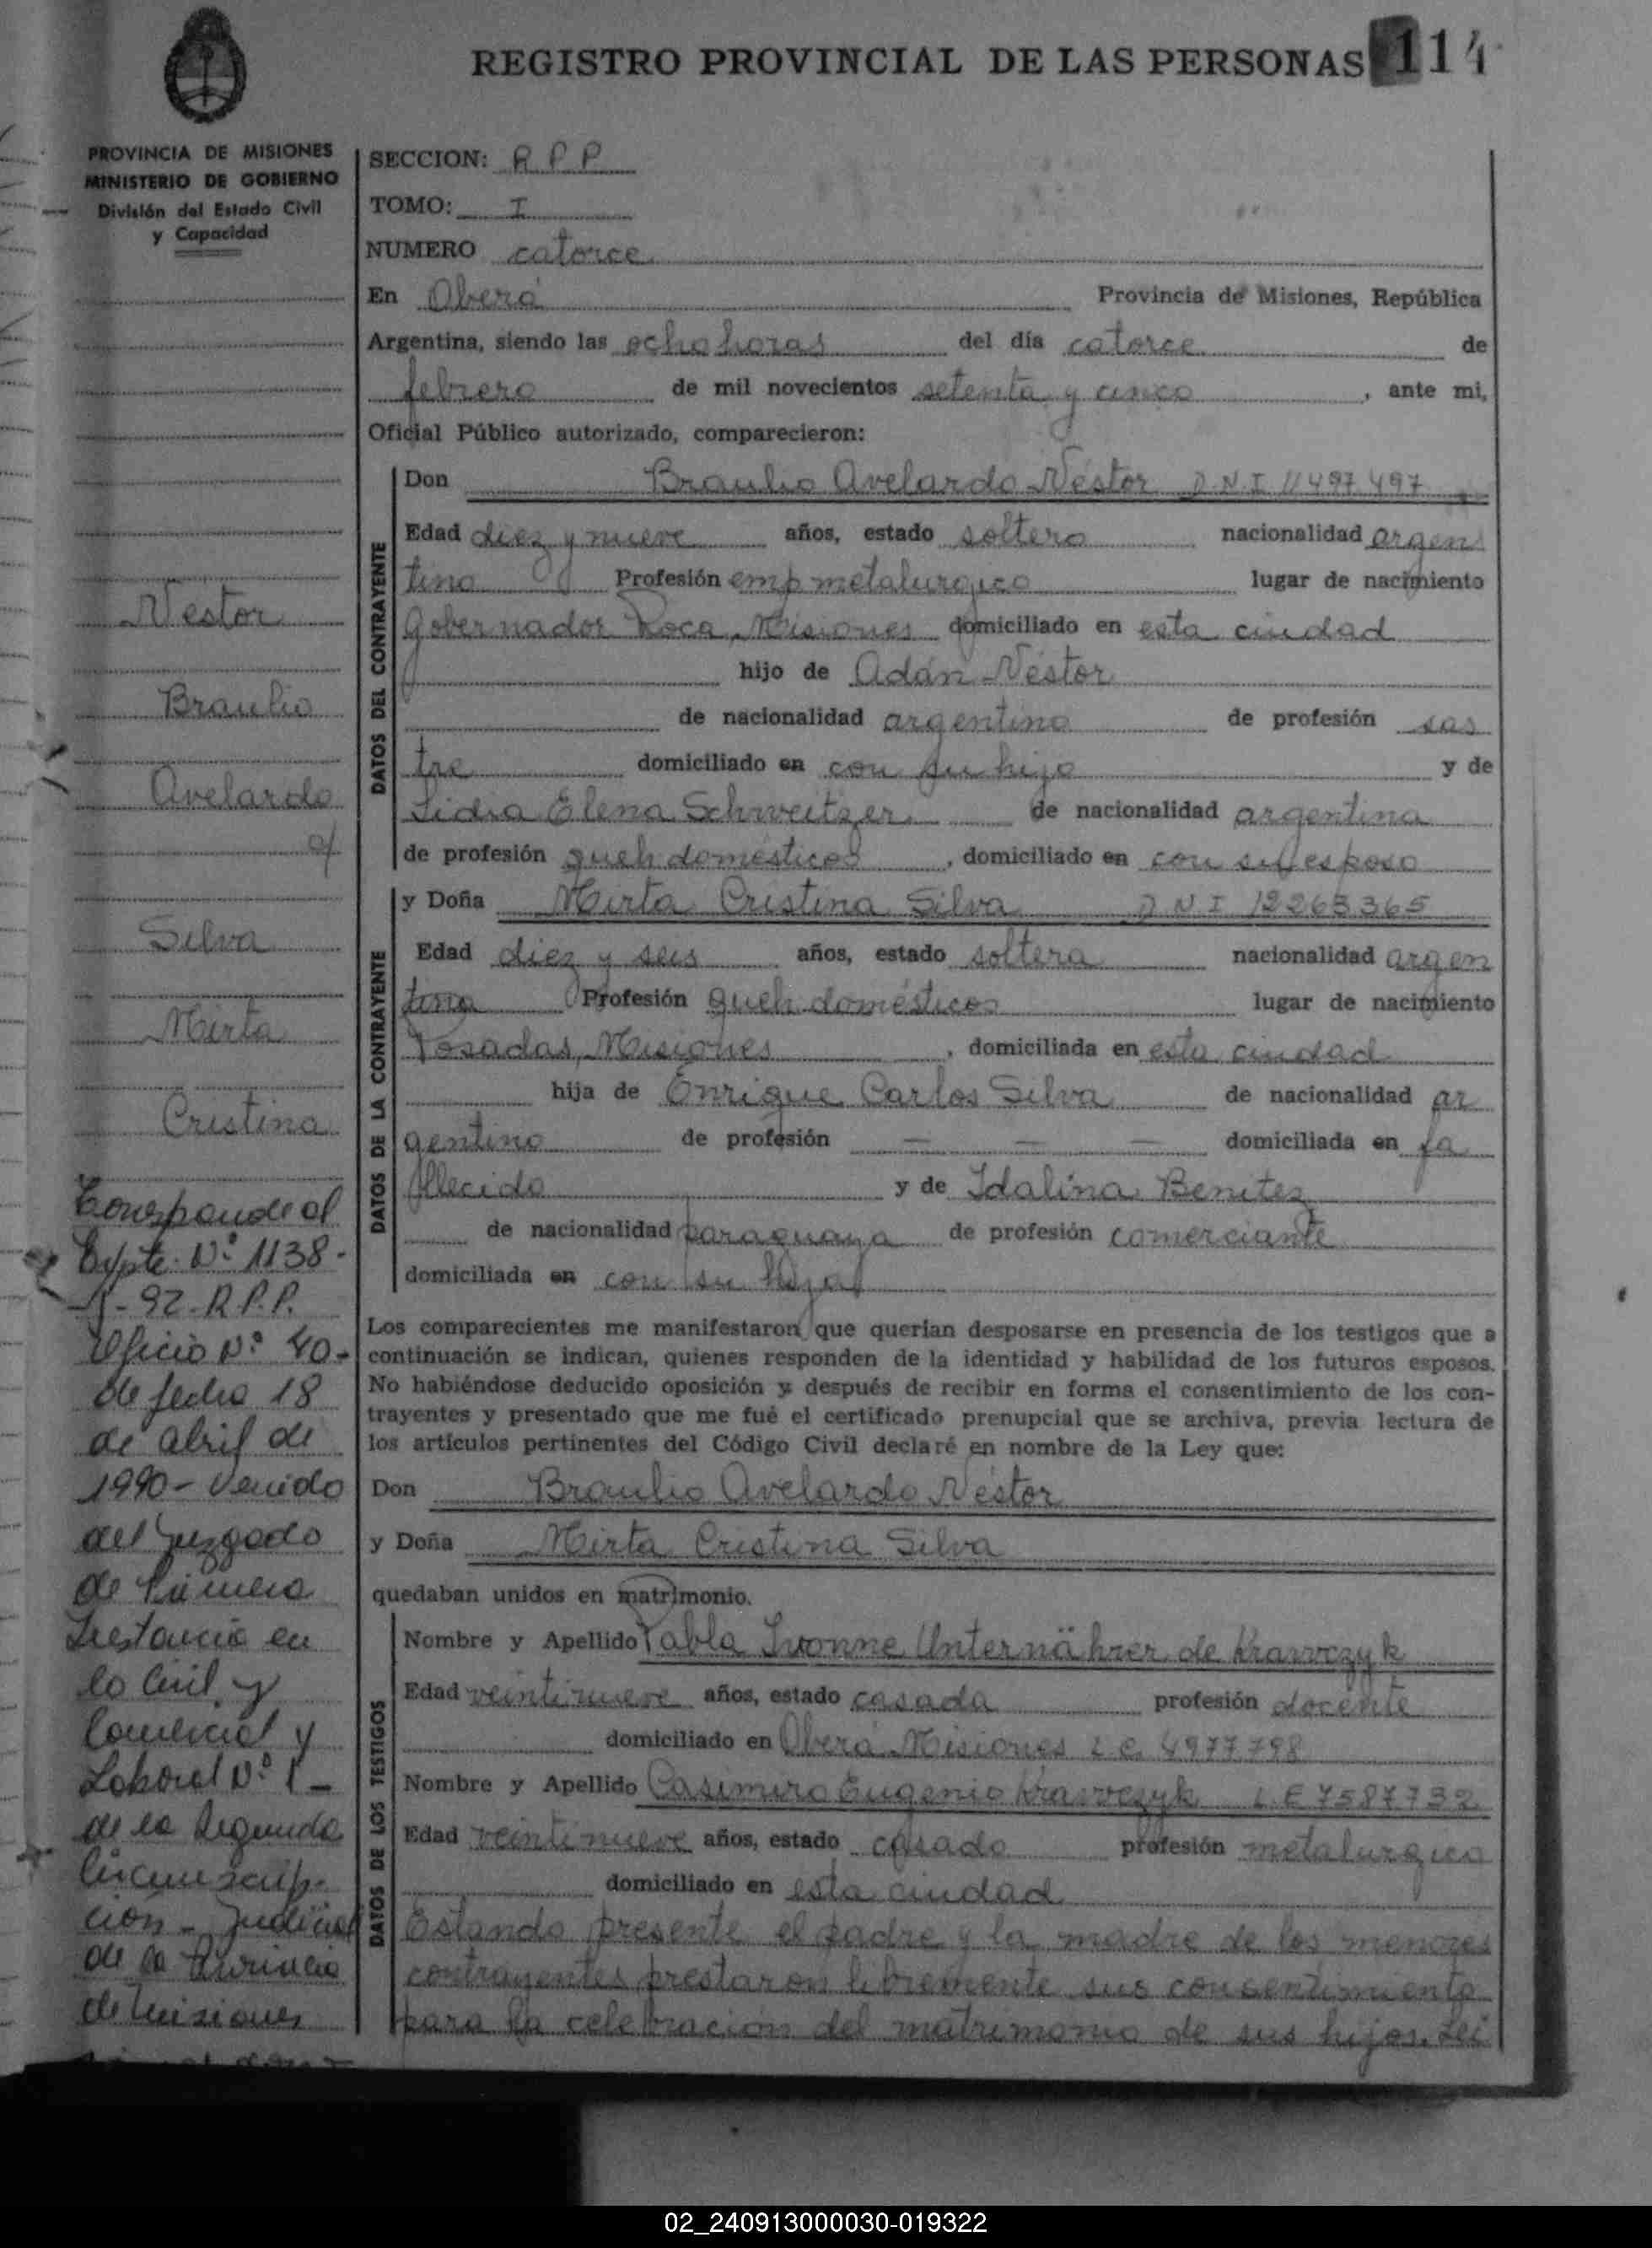 REGISTRO PROVINCIAL DE LAS PERSONAS 114
PROVINCIA DE MISIONES
MINISTERIO DE GOBIERNO
División del Estado Civil
y Capacidad
Nestor
Braulio
Avelardo
c/
Silva
Mirta
Cristina
Corresponde al
Expte. Nº 1138-
-92-R.P.P.
Oficio Nº 40-
de fecha 18
de abril de
1990- Venido
del Juzgado
de Primera
Instancia en
lo Civil y
Comercial y
Laboral Nº 1-
de la Segunda
Circunscrip-
ción- Judicial
de la Provincia
de Misiones
SECCION: R P P
TOMO: I
NUMERO catorce
En Oberá Provincia de Misiones, República
Argentina, siendo las ocho horas del día catorce de
febrero de mil novecientos setenta y cinco, ante mi,
Oficial Público autorizado, comparecieron:
DATOS DEL CONTRAYENTE
Don Braulio Avelardo Néstor D N I 11497497
Edad diez y nueve años, estado soltero nacionalidad argen
tino Profesión emp metalurgico lugar de nacimiento
Gobernador Roca, Misiones domiciliado en esta ciudad
hijo de Adán Néstor
de nacionalidad argentino de profesión sas
tre domiciliado en con su hijo y de
Lidia Elena Schweitzer de nacionalidad argentina
de profesión queh domésticos, domiciliado en con su esposo
DATOS DE LA CONTRAYENTE
y Doña Mirta Cristina Silva D N I 12263365
Edad diez y seis años, estado soltera nacionalidad argen
tina Profesión queh domésticos lugar de nacimiento
Posadas, Misiones, domiciliada en esta ciudad
hija de Enrique Carlos Silva de nacionalidad ar
gentino de profesión — — — domiciliada en fa
llecido y de Idalina Benitez
de nacionalidad paraguaya de profesión comerciante
domiciliada en con su hija
Los comparecientes me manifestaron que querían desposarse en presencia de los testigos que a
continuación se indican, quienes responden de la identidad y habilidad de los futuros esposos.
No habiéndose deducido oposición y después de recibir en forma el consentimiento de los con-
trayentes y presentado que me fué el certificado prenupcial que se archiva, previa lectura de
los artículos pertinentes del Código Civil declaré en nombre de la Ley que:
Don Braulio Avelardo Néstor
y Doña Mirta Cristina Silva
quedaban unidos en matrimonio.
DATOS DE LOS TESTIGOS
Nombre y Apellido Pabla Ivonne Unternährer de Krawczyk
Edad veintinueve años, estado casada profesión docente
domiciliado en Oberá Misiones L C 4977798
Nombre y Apellido Casimiro Eugenio Krawczyk L E 7587732
Edad veintinueve años, estado casado profesión metalurgico
domiciliado en esta ciudad
Estando presente el padre y la madre de los menores
contrayentes prestaron libremente sus consentimiento
para la celebración del matrimonio de sus hijos. Lei
02_240913000030-019322